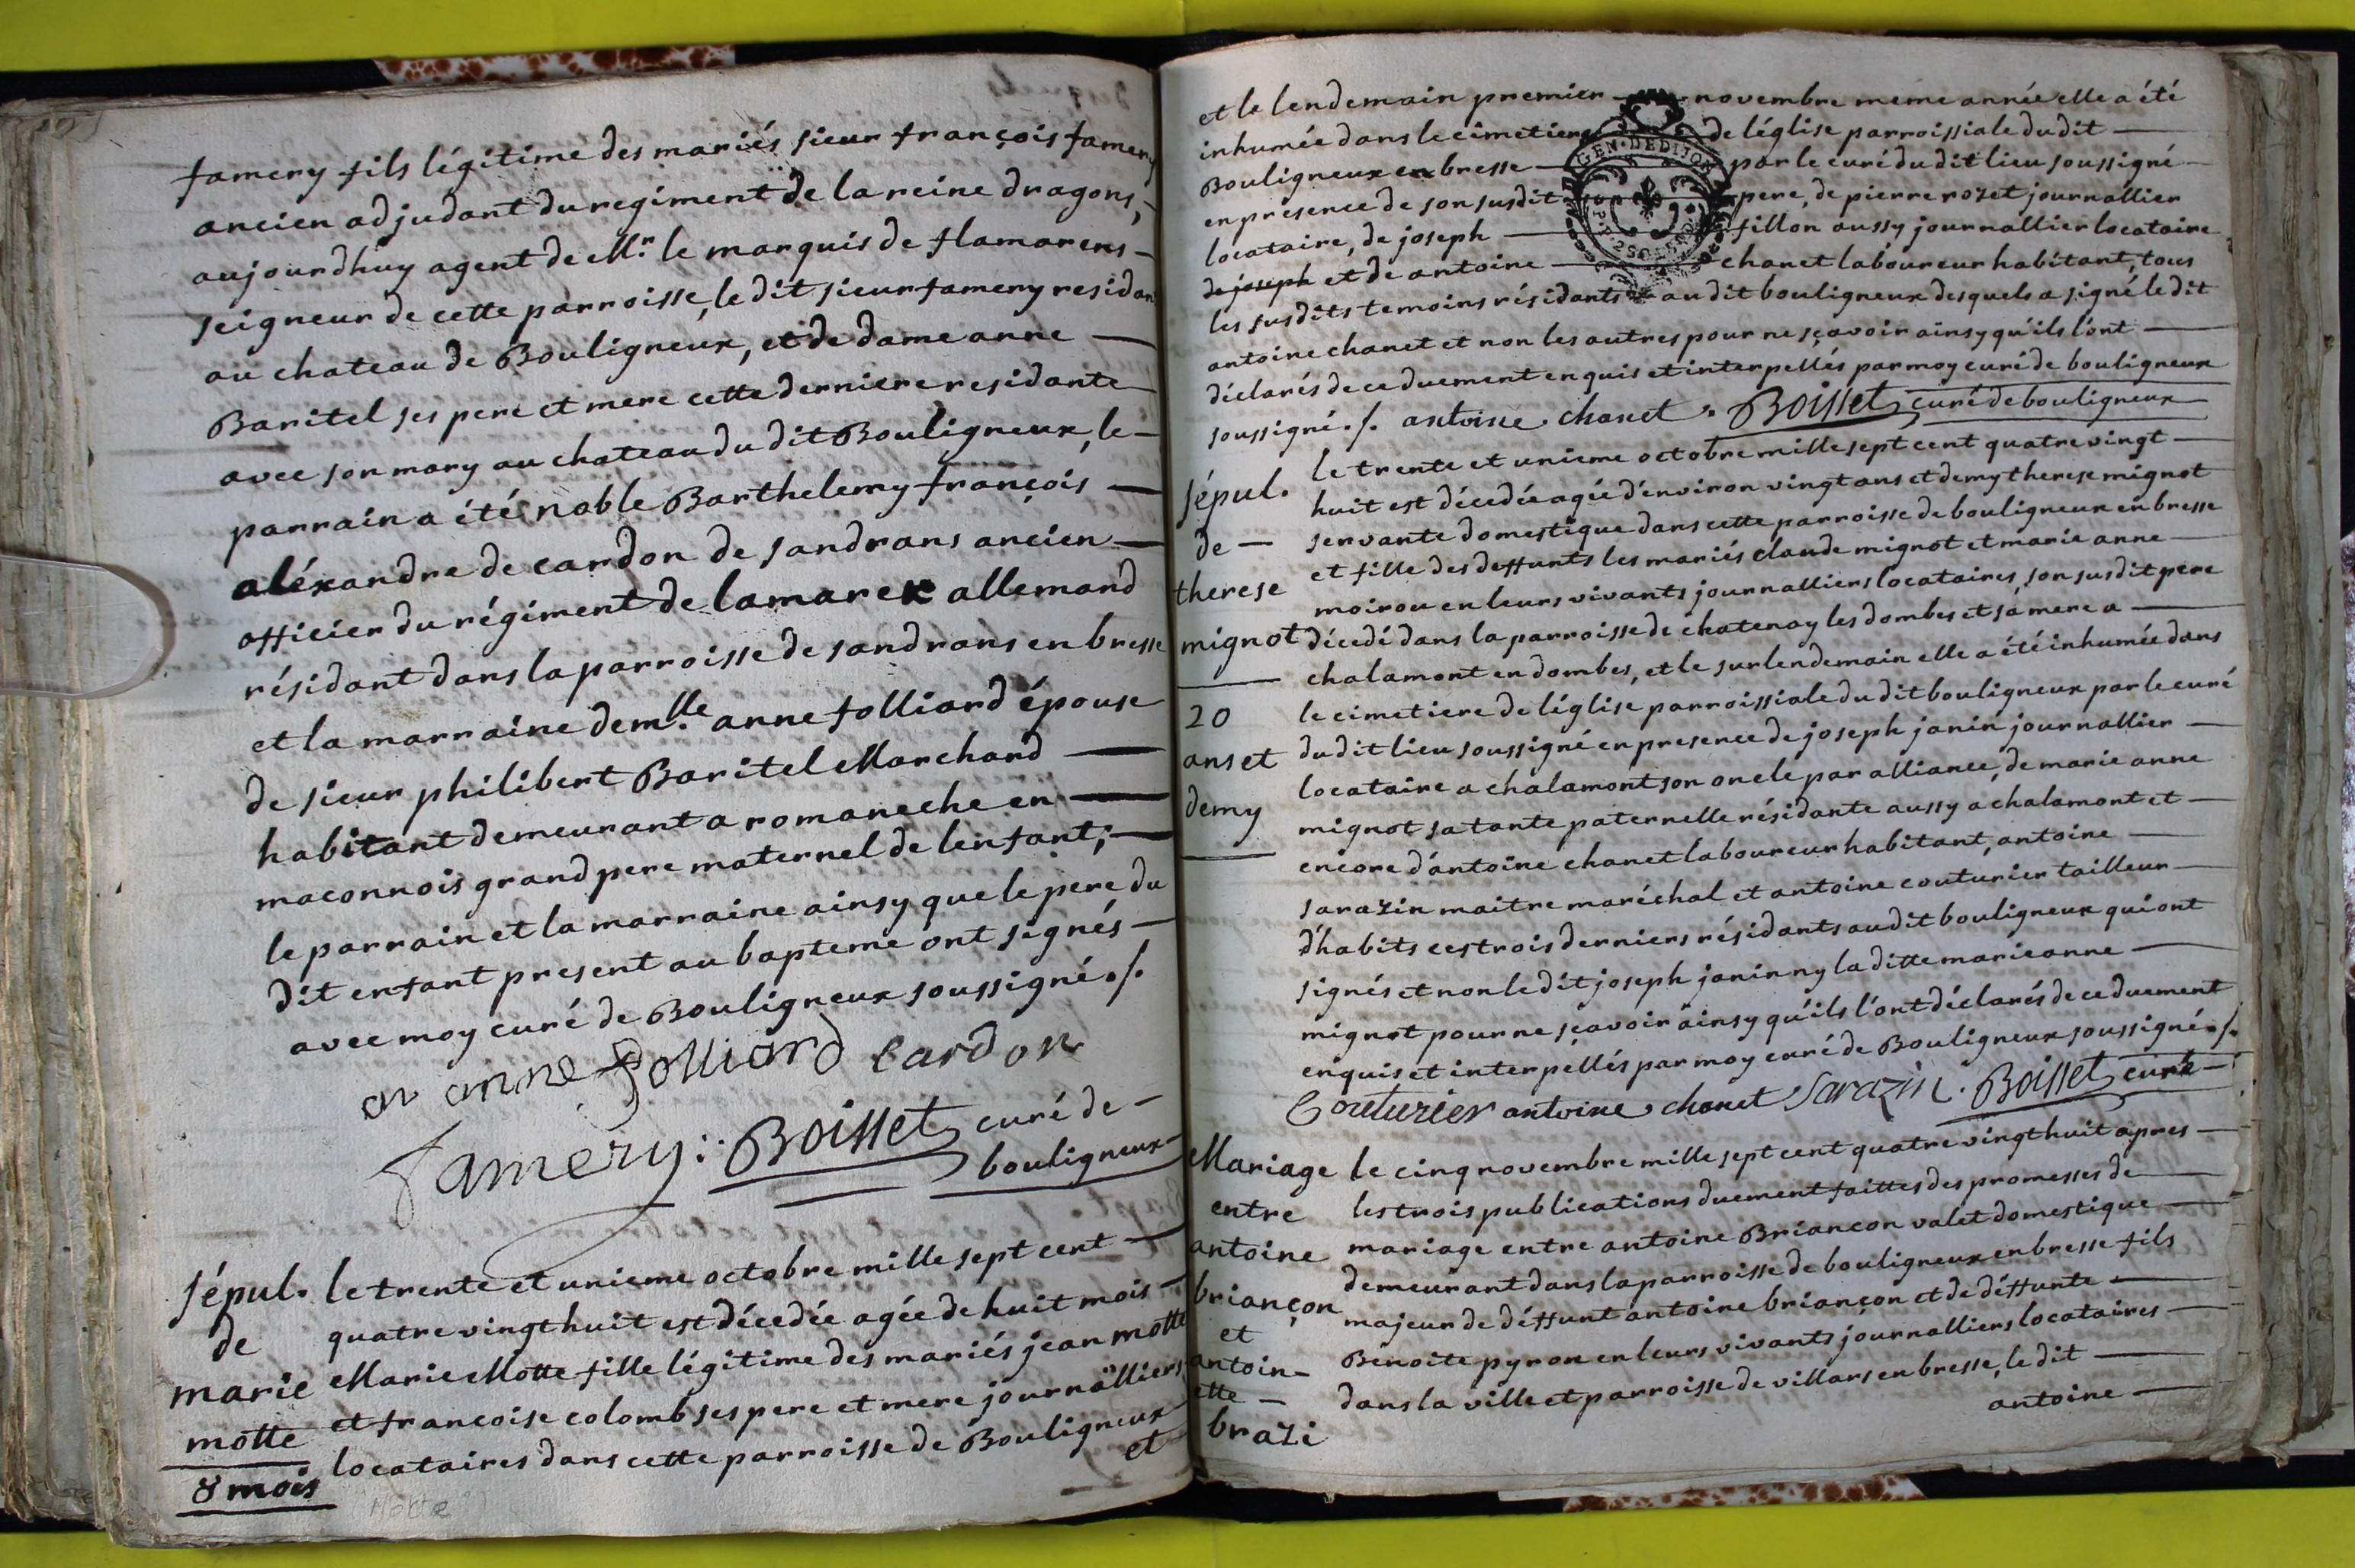 famery fils légitime des mariés sieur françois famery
ancien adjudant du regiment de la reine dragons,
aujourdhuy agent de Mr. le marquis de flamarens
seigneur de cette parroisse, le dit sieur famery residant
au chateau de Bouligneux, et de dame anne
Baritel ses pere et mere cette derniere residante
avec son mary au chateau du dit Bouligneux, le
parrain a été noble Barthelemy françois
aléxandre de cardon de sandrans ancien
officier du régiment de lamarck allemand
résidant dans la parroisse de sandrans en bresse
et la marraine demlle. anne folliard épouse
de sieur philibert Baritel Marchand
habitant demeurant a romaneche en
maconnois grand pere maternel de lenfant;
le parrain et la marraine ainsy que le pere du
dit enfant present au bapteme ont signés
avec moy curé de Bouligneux soussigné./.
anne folliard cardon
famery: Boisset curé de
bouligneux
sépul.
de
marie
motte
8 mois
le trente et unieme octobre mille sept cent
quatre vingt huit est décedée agée de huit mois
Marie Motte fille légitime des mariés jean motte
et francoise colomb ses pere et mere journalliers
locataires dans cette parroisse de Bouligneux
et
Motte
et le lendemain premier novembre meme année elle a été
inhumée dans le cimetiere de léglise parroissiale du dit
Bouligneux en bresse par le curé du dit lieu soussigné
en présence de son susdit pere, de pierre rozet journallier
locataire, de joseph fillon aussy journallier locataire
de joseph et de antoine chanet laboureur habitant, tous
les susdits temoins résidants au dit bouligneux desquels a signé le dit
antoine chanet et non les autres pour ne sçavoir ainsy qu'ils l'ont
déclarés de ce duement enquis et interpellés par moy curé de bouligneux
soussigné./. antoine chanet. Boisset curé de bouligneux
GEN. DE DIJON
sépul.
de
therese
mignot
20
ans et
demy
le trente et unieme octobre mille sept cent quatre vingt
huit est décedée agée d'environ vingt ans et demy therese mignot
servante domestique dans cette parroisse de bouligneux en bresse
et fille des deffunts les mariés claude mignot et marie anne
moirou en leurs vivants journalliers locataires, son susdit pere
décedé dans la parroisse de chatenay les dombes et sa mere a
chalamont en dombes, et le surlendemain elle a été inhumée dans
le cimetiere de léglise parroissiale du dit bouligneux par le curé
du dit lieu soussigné en presence de joseph janin journallier
locataire a chalamont son oncle par alliance, de marie anne
mignot sa tante paternelle résidante aussy a chalamont et
encore d'antoine chanet laboureur habitant, antoine
sarazin maitre maréchal et antoine couturier tailleur
d'habits ces trois derniers résidants au dit bouligneux qui ont
signés et non le dit joseph janin ny la ditte marie anne
mignot pour ne sçavoir ainsy qu'ils l'ont déclarés de ce duement
enquis et interpellés par moy curé de Bouligneux soussigné./.
Couturier antoine chanet Sarazin. Boisset curé
Mariage
entre
antoine
briançon
et
antoin-
ette
brazi
le cinq novembre mille sept cent quatre vingt huit apres
les trois publications duement faittes des promesses de
mariage entre antoine Briancon valet domestique
demeurant dans la parroisse de bouligneux en bresse fils
majeur de déffunt antoine briançon et de déffunte
Benoite pyron en leurs vivants journalliers locataires
dans la ville et parroisse de villars en bresse, le dit
antoine